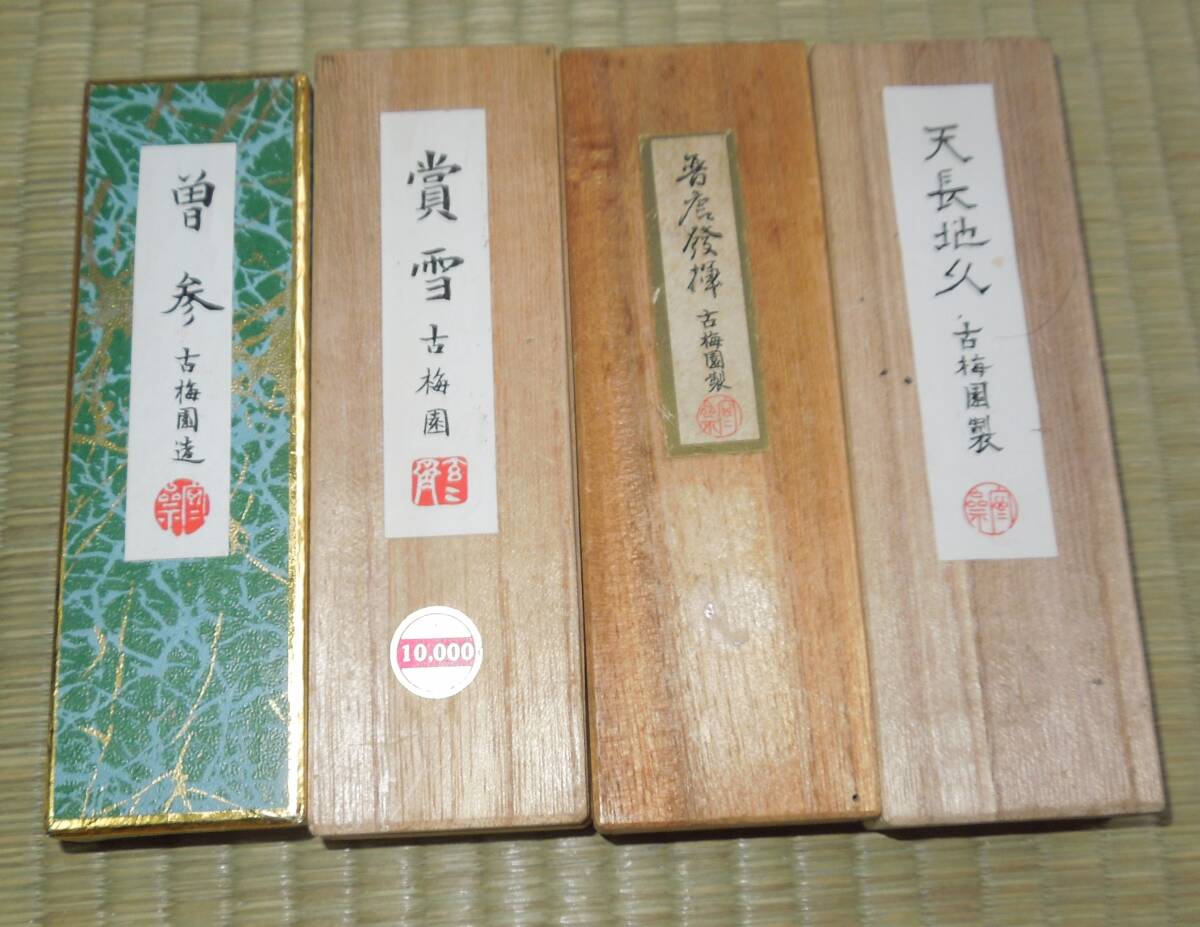 曽参 古梅園造
賞雪 古梅園
10,000
晋唐發揮 古梅園製
天長地久 古梅園製